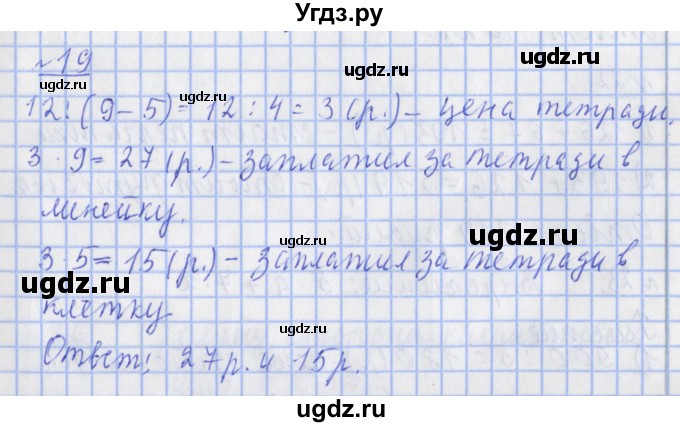 Угдз.ру
№19
ugdz.ru ugdz.ru ugdz.ru
12:(9-5)=12:4=3(р.)-цена тетради.
3·9=27(р.)-заплатил за тетради в
ugdz.ru
линейку.
ugdz.ru ugdz.ru
3·5=15(р.)-заплатил за тетради в
клетку
ugdz.ru ugdz.ru
Ответ: 27р. и 15р.
ugdz.ru